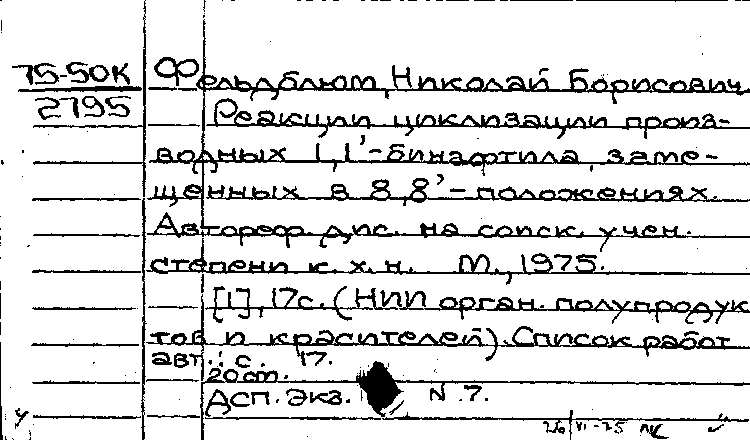 75-50К
2795
Фельдблюм, Николай Борисович
Реакции циклизации произ-
водных 1,1'-бинафтила, заме-
щенных в 8,8'-положениях.
Автореф. дис. на соиск. учен.
степени к. х. н. М., 1975.
[1], 17с. (НИИ орган. полупродук
тов и красителей). Список работ
авт.: с. 17.
20см.
Дсп. экз. N 7.
26/VI-75